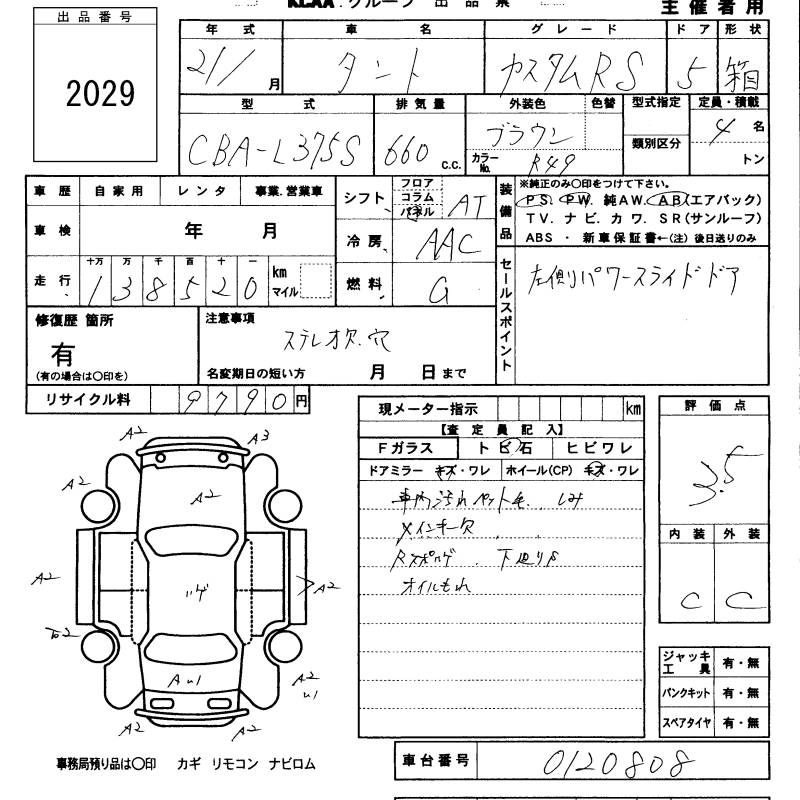 KLAA.グループ 出品票
主催者用
出品番号
2029
年式 車名 グレード ドア 形状
21/ 月 タント カスタムRS 5 箱
型式 排気量 外装色 色替 型式指定 定員・積載
CBA-L375S 660 c.c. ブラウン カラーNo. R49 類別区分 4 名 トン
車歴 自家用 レンタ 事業.営業車
シフト フロア コラム パネル AT
車検 年 月
冷房 AAC
走行 十万 万 千 百 十 一
138520 km マイル
燃料 G
装備品
※純正のみ〇印をつけて下さい。
PS. PW. 純AW. AB(エアバック)
TV. ナビ. カワ. SR(サンルーフ)
ABS ・ 新車保証書←(注) 後日送りのみ
セールスポイント
左側りパワースライドドア
修復歴 箇所
有
(有の場合は〇印を)
注意事項
ステレオ欠.穴
名変期日の短い方 月 日まで
リサイクル料 9790円
現メーター指示 km
【査定員記入】
Fガラス トビ石 ヒビワレ
ドアミラー キズ・ワレ ホイール(CP) キズ・ワレ
車内汚れ ペット毛. しみ
メインキー欠
下廻りS
オイルもれ
評価点
3.5
内装 外装
C C
A2 A3
A2
A2
A2
ハゲ
A2
A2
AU1
A2
U1
A2 A2
ジャッキ工具 有・無
パンクキット 有・無
スペアタイヤ 有・無
事務局預り品は〇印 カギ リモコン ナビロム
車台番号 0120808